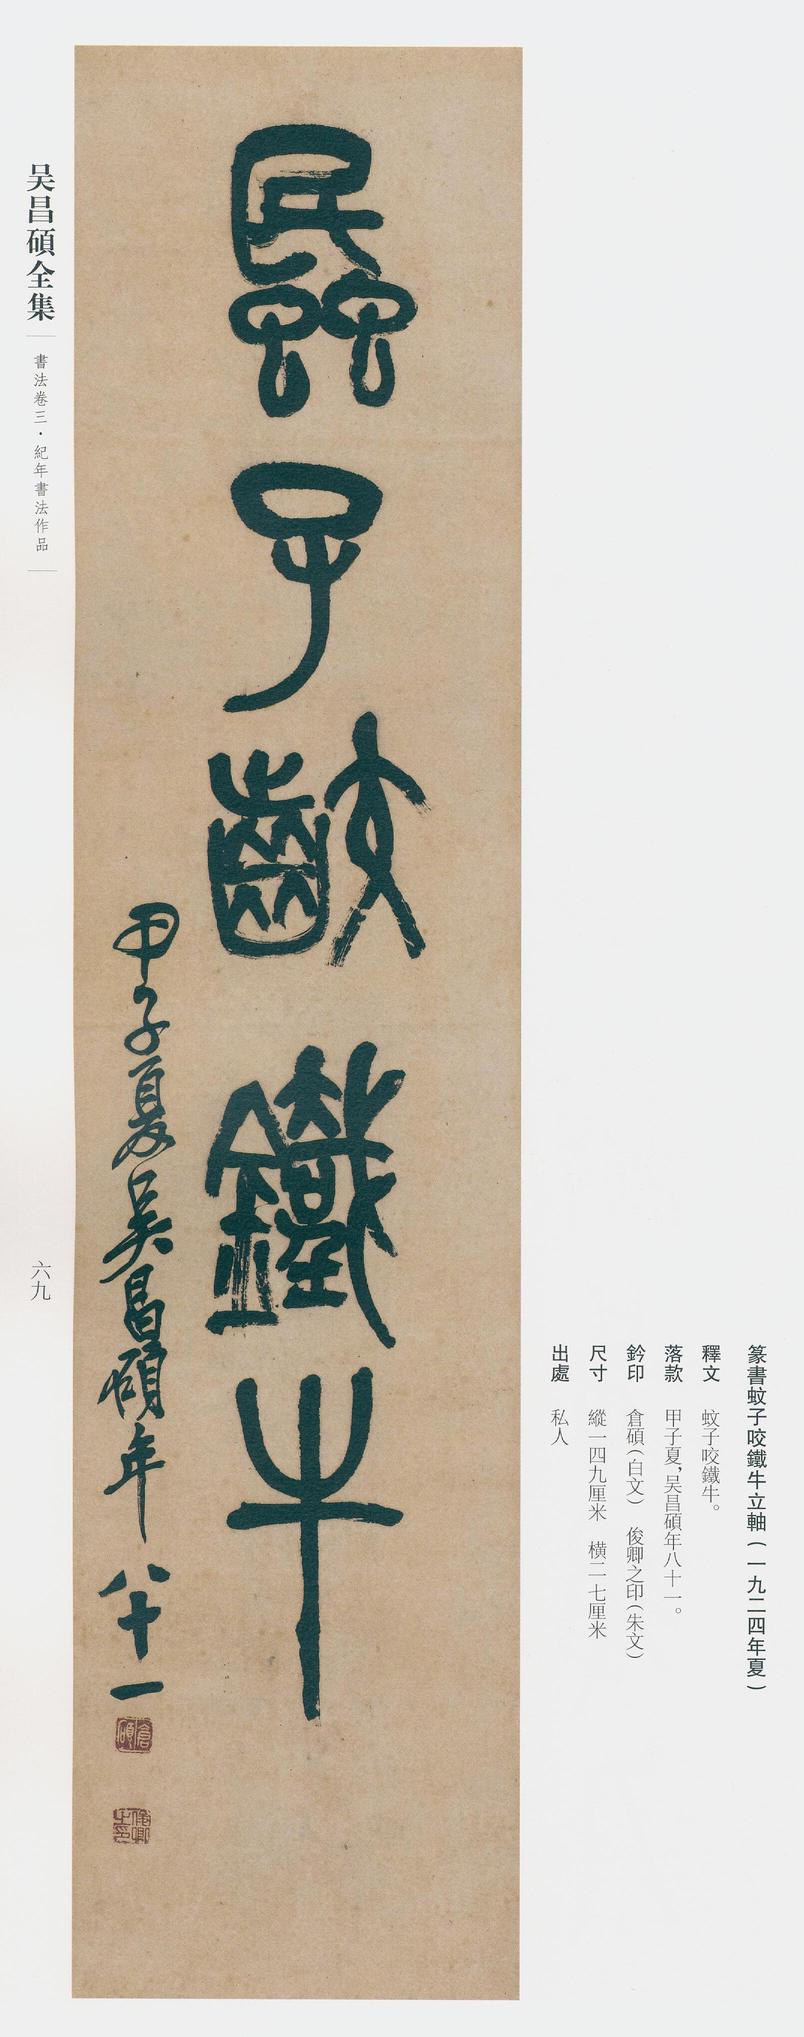 篆書蚊子咬鐵牛立軸(一九二四年夏)
釋文 蚊子咬鐵牛。
落款 甲子夏,吴昌碩年八十一。
鈐印 倉碩(白文) 俊卿之印(朱文)
尺寸 縱一四九厘米 橫二七厘米
出處 私人
蟁子齩鐵牛
甲子夏吴昌碩年八十一
倉碩
俊卿之印
吴昌碩全集
書法卷三·紀年書法作品
六九